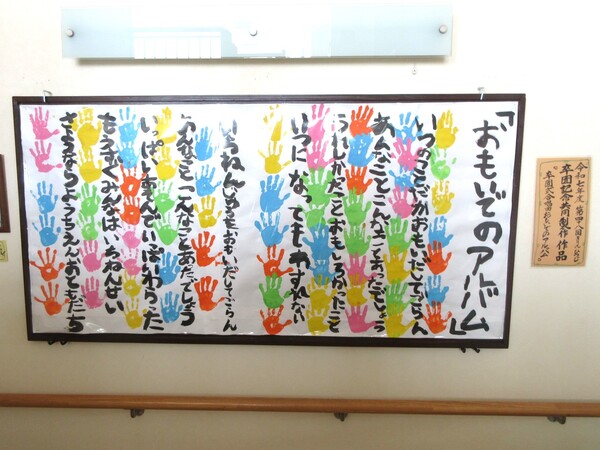 「おもいでのアルバム」
いつのことだかおもいだしてごらん
あんなことこんなことあったでしょう
うれしかったことおもしろかったこと
いつになってもわすれない
いちねんじゅうをおもいだしてごらん
あんなことこんなことあったでしょう
いっぱいあそんでいっぱいわらった
もうすぐみんなはいちねんせい
さよならようちえんおともだち
令和七年度 第四十八回
卒園記念共同製作 作品
卒園式 おもいでのアルバム